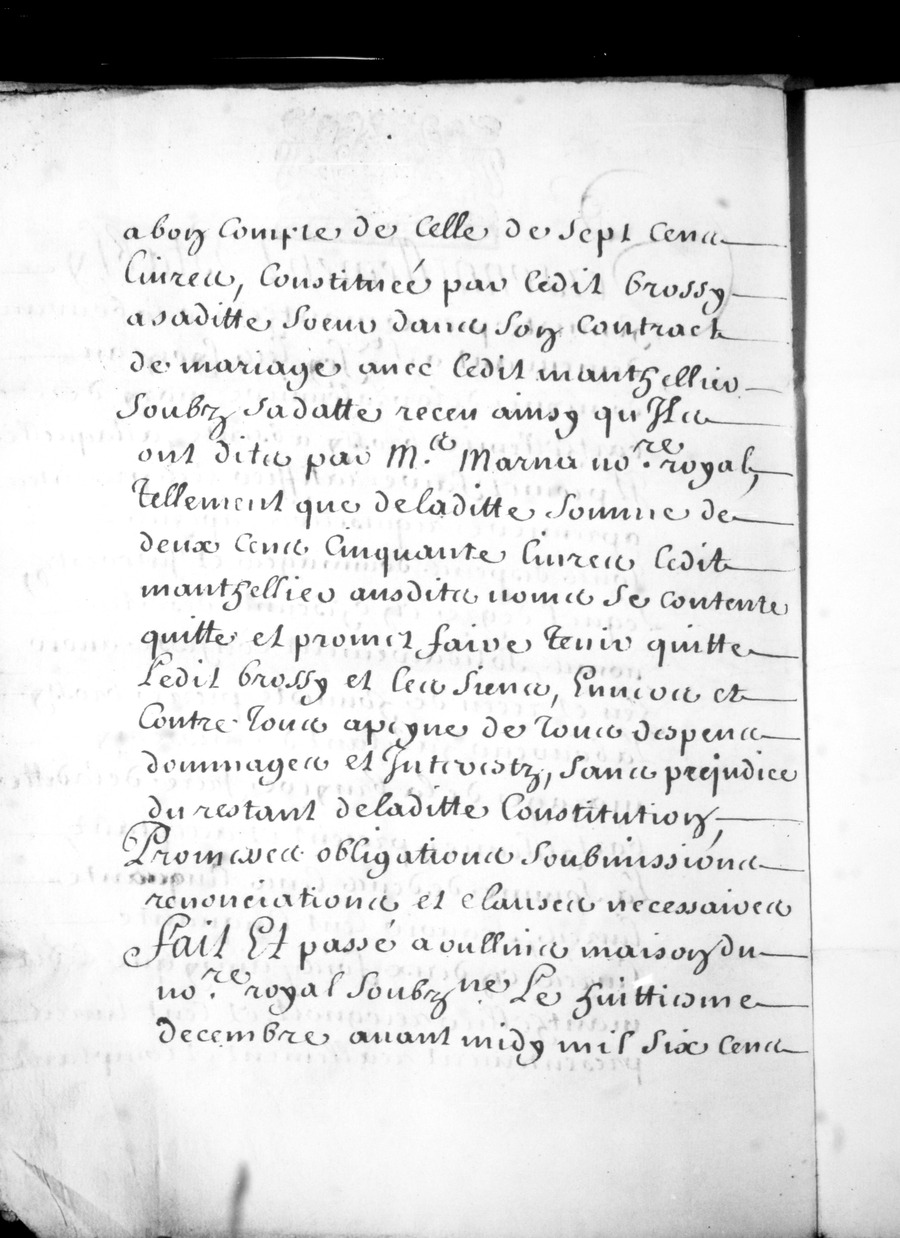 a bon Compte de Celle de Sept Cens
Livres, Constituée par Ledit brossy
a saditte Soeur dans Son Contract
de mariage avec Ledit manthellier
Soubz Sa datte receu ainsy qu'Ils
ont dits par M.e Marna no.re royal,
Tellement que deladitte Somme de
deux Cens Cinquante livres Ledit
manthellier ausdits noms Se contente
quitte et promet faire tenir quitte
Ledit brossy et les Siens, Envers et
Contre Tous a peyne de Tous despens
dommages et Interestz, Sans prejudice
du restant deladitte Constitution,
Promesses obligations Soubmissions
renonciations et clauses necessaires
Fait Et passé a oullins maison du
no.re royal Soubz.né Le huittiesme
decembre avant midy mil Six cens